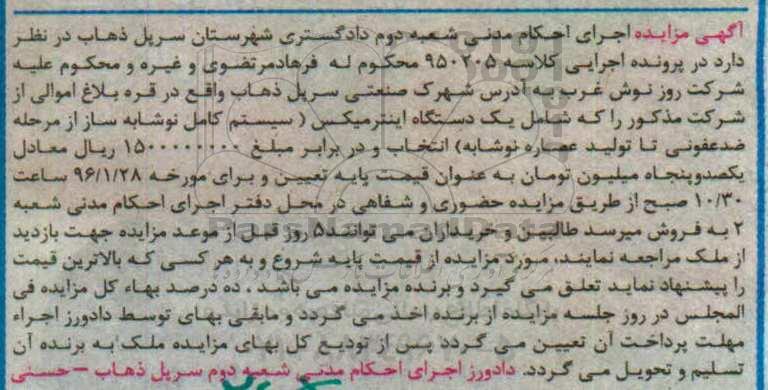 آگهی مزایده اجرای احکام مدنی شعبه دوم دادگستری شهرستان سرپل ذهاب در نظر
دارد در پرونده اجرایی کلاسه ۹۵۰۲۰۵ محکوم له فرهادمرتضوی و غیره و محکوم علیه
شرکت روز نوش غرب به آدرس شهرک صنعتی سرپل ذهاب واقع در قره بلاغ اموالی از
شرکت مذکور را که شامل یک دستگاه اینترمیکس ( سیستم کامل نوشابه ساز از مرحله
ضدعفونی تا تولید عصاره نوشابه) انتخاب و در برابر مبلغ ۱۵۰۰۰۰۰۰۰۰ ریال معادل
یکصدوپنجاه میلیون تومان به عنوان قیمت پایه تعیین و برای مورخه ۹۶/۱/۲۸ ساعت
۱۰/۳۰ صبح از طریق مزایده حضوری و شفاهی در محل دفتر اجرای احکام مدنی شعبه
۲ به فروش میرسد طالبین و خریداران می توانند۵ روز قبل از موعد مزایده جهت بازدید
از ملک مراجعه نمایند، مورد مزایده از قیمت پایه شروع و به هر کسی که بالاترین قیمت
را پیشنهاد نماید تعلق می گیرد و برنده مزایده می باشد ، ده درصد بهاء کل مزایده فی
المجلس در روز جلسه مزایده از برنده اخذ می گردد و مابقی بهای توسط دادورز اجراء
مهلت پرداخت آن تعیین می گردد پس از تودیع کل بهای مزایده ملک به برنده آن
تسلیم و تحویل می گردد. دادورز اجرای احکام مدنی شعبه دوم سرپل ذهاب – حسنی
ParsNamadData